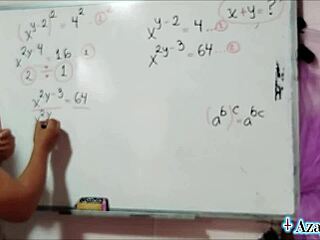 (x^{y-2})^2 = 4^2 ②
x^{2y-4} = 16 ...①
② ÷ ①
x^{2y-3} = 64
x^{2y
x^{y-2} = 4 ...①
x^{2y-3} = 64 ...②
x+y=?
(a^b)^c = a^{bc}
+ Aza